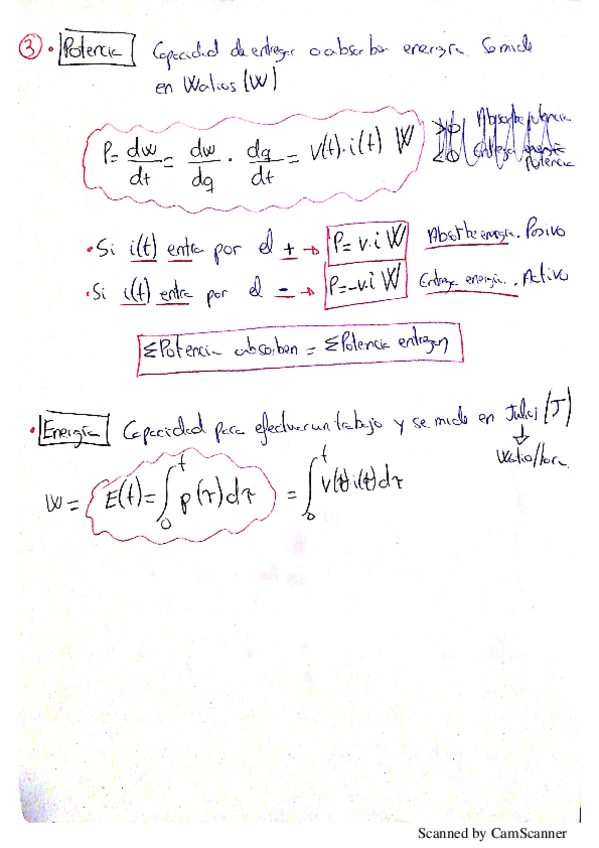 ③ • Potencia Capacidad de entregar o absorber energía. Se mide
en Watios (W)
P = dw/dt = dw/dq · dq/dt = v(t)·i(t) W
>0 Absorbe potencia
<0 potencia
• Si i(t) entra por el + → P = v·i W Absorbe energía. Pasivo
• Si i(t) entra por el - → P = -v·i W Entrega energía. Activo
ΣPotencia absorben = ΣPotencia entregan
• Energía Capacidad para efectuar un trabajo y se mide en Julios (J)
↓
Watio/hora.
W = E(t) = ∫₀ᵗ p(τ)dτ = ∫₀ᵗ v(t)·i(t)dτ
Scanned by CamScanner